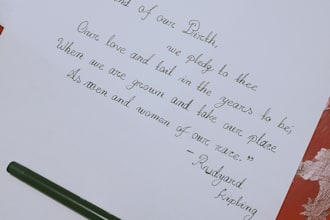 nd of our Birth,
we pledge to thee
Our love and toil in the years to be;
When we are grown and take our place
As men and women of our race."
- Rudyard
Kipling